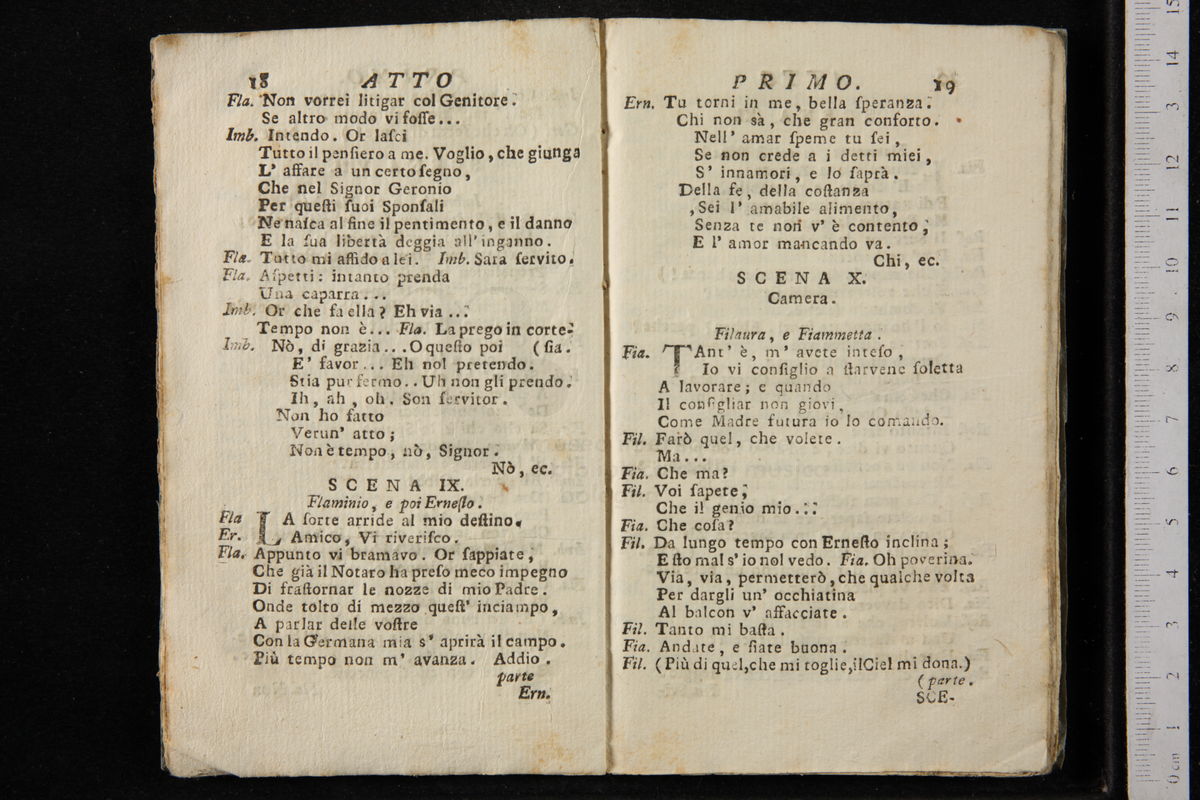 18 ATTO
Fla. Non vorrei litigar col Genitore.
Se altro modo vi foſſe...
Imb. Intendo. Or laſci
Tutto il penſiero a me. Voglio, che giunga
L' affare a un certo ſegno,
Che nel Signor Geronio
Per queſti ſuoi Sponſali
Ne naſca al fine il pentimento, e il danno
E la ſua libertà deggia all' inganno.
Fla. Tutto mi affido a lei. Imb. Sara ſervito.
Fla. Aſpetti: intanto prenda
Una caparra...
Imb. Or che fa ella? Eh via...
Tempo non è... Fla. La prego in corte-
Imb. Nò, di grazia...O queſto poi (ſia.
E' favor... Eh nol pretendo.
Stia pur fermo..Uh non gli prendo.
Ih, ah, oh. Son ſervitor.
Non ho fatto
Verun' atto;
Non è tempo, nò, Signor.
Nò, ec.
SCENA IX.
Flaminio, e poi Erneſto.
Fla LA ſorte arride al mio deſtino.
Er. Amico, Vi riveriſco.
Fla. Appunto vi bramavo. Or ſappiate,
Che già il Notaro ha preſo meco impegno
Di fraſtornar le nozze di mio Padre.
Onde tolto di mezzo queſt' inciampo,
A parlar delle voſtre
Con la Germana mia s' aprirà il campo.
Più tempo non m' avanza. Addio.
parte
Ern.
PRIMO. 19
Ern. Tu torni in me, bella ſperanza.
Chi non sà, che gran conforto.
Nell' amar ſpeme tu ſei,
Se non crede a i detti miei,
S' innamori, e lo ſaprà.
Della fe, della coſtanza
,Sei l' amabile alimento,
Senza te non v' è contento;
E l' amor mancando va.
Chi, ec.
SCENA X.
Camera.
Filaura, e Fiammetta.
Fia. TAnt' è, m' avete inteſo,
Io vi conſiglio a ſtarvene ſoletta
A lavorare; e quando
Il conſigliar non giovi,
Come Madre futura io lo comando.
Fil. Farò quel, che volete.
Ma...
Fia. Che ma?
Fil. Voi ſapete;
Che il genio mio...
Fia. Che coſa?
Fil. Da lungo tempo con Erneſto inclina;
E ſto mal s' io nol vedo. Fia. Oh poverina.
Via, via, permetterò, che qualche volta
Per dargli un' occhiatina
Al balcon v' affacciate.
Fil. Tanto mi baſta.
Fia. Andate, e ſiate buona.
Fil. (Più di quel,che mi toglie,ilCiel mi dona.)
(parte.
SCE-